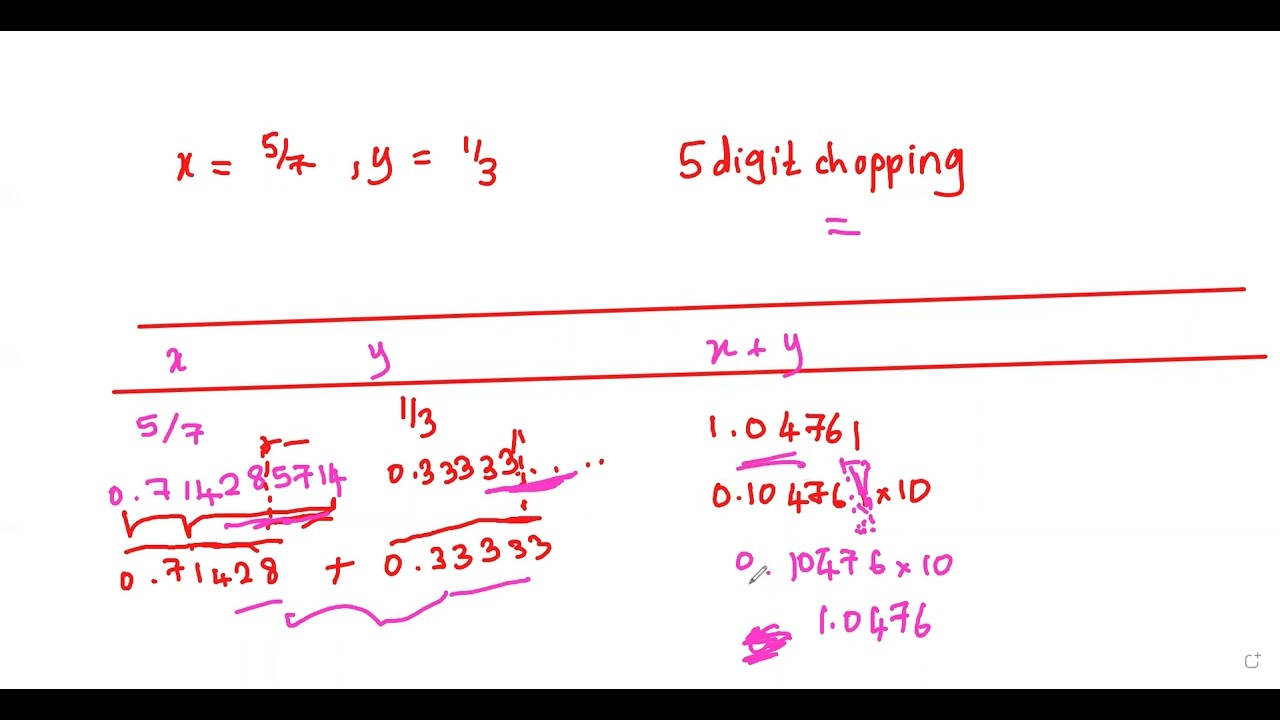 x = 5/7 , y = 1/3 5 digit chopping
=
x y x + y
5/7 1/3 1.04761
0.714285714 0.33333.... 0.104761 x 10
0.71428 + 0.33333 0.10476 x 10
1.0476